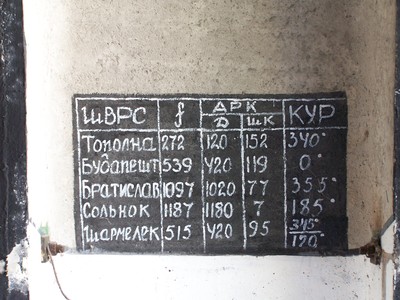 ШВРС f ДРК КУР
Д ШК
Тополна 272 120 152 340°
Будапешт 539 420 119 0°
Братислав 1097 1020 77 355°
Сольнок 1187 1180 7 185°
Шармелек 515 420 95 345°
170°